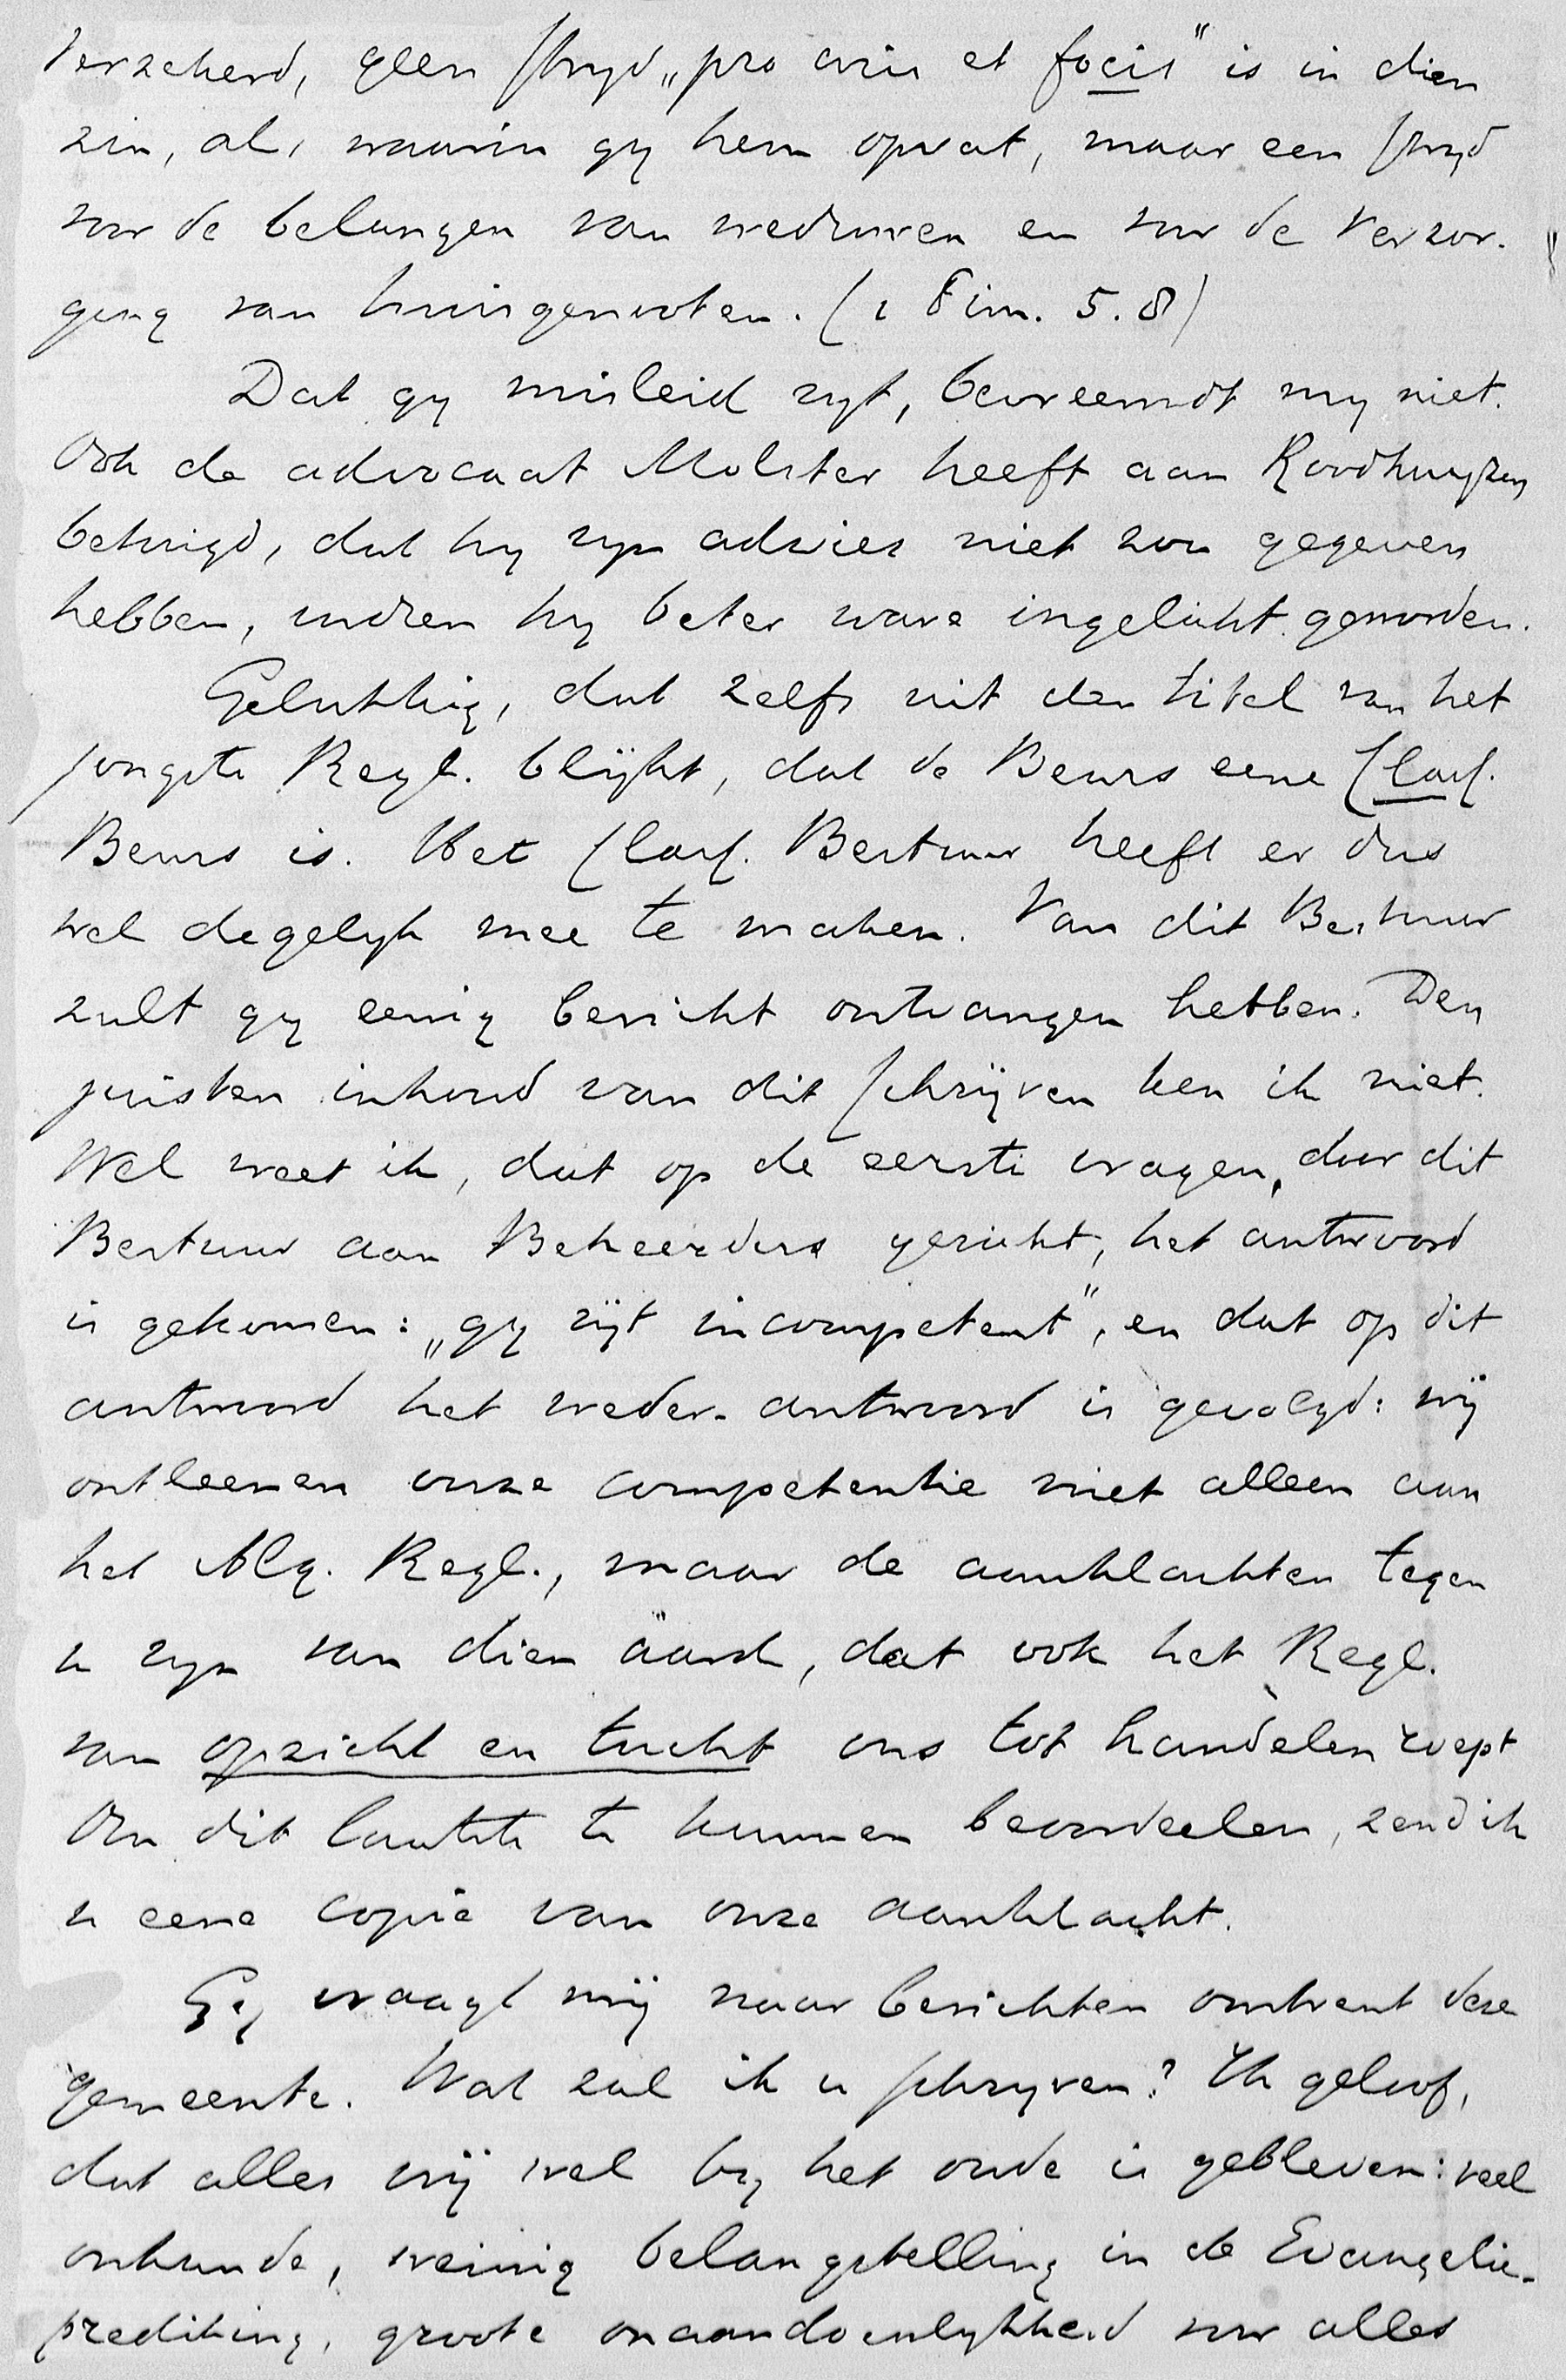 verzekerd, geen stryd „pro aris et focis" is in dien
zin, als waarin gy hem opvat, maar een stryd
voor de belangen van weduwen en voor de verzor-
ging van huisgenooten. (1 Tim. 5.8)
Dat gy misleid zyt, bevreemdt my niet.
Ook de advocaat Molster heeft aan Roodhuyzen
betuigd, dat hy zyn advies niet zou gegeven
hebben, indien hy beter ware ingelicht geworden.
Gelukkig, dat zelfs uit den titel van het
jongste Regl. blijkt, dat de Beurs eene Class.
Beurs is. Het Class. Bestuur heeft er dus
wel degelyk mee te maken. Van dit Bestuur
zult gy eenig bericht ontvangen hebben. Den
juisten inhoud van dit schrijven ken ik niet.
Wel weet ik, dat op de eerste vragen, door dit
Bestuur aan Beheerders gericht, het antwoord
is gekomen: „gy zijt incompetent", en dat op dit
antwoord het weder-antwoord is gevolgd: wij
ontleenen onze competentie niet alleen aan
het Alg. Regl., maar de aanklachten tegen
u zyn van dien aard, dat ook het Regl.
van opzicht en tucht ons tot handelen roept
Om dit laatste te kunnen beoordeelen, zend ik
u eene copie van onze aanklacht.
Gy vraagt mij naar berichten omtrent deze
gemeente. Wat zal ik u schryven? Ik geloof,
dat alles vrij wel by het oude is gebleven: veel
onkunde, weinig belangstelling in de Evangelie-
prediking, groote onaandoenlykheid voor alles